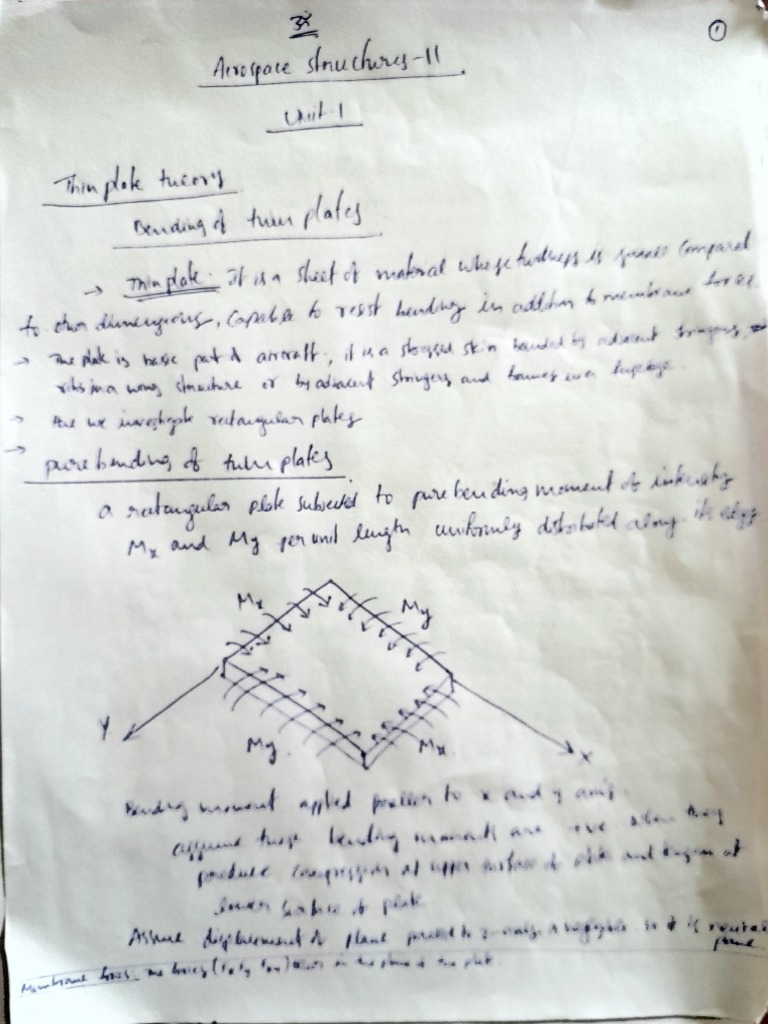 ①
Aerospace structures-II
Unit-I
Thin plate theory
Bending of thin plates
→ Thin plate: It is a sheet of material whose thickness is small compared
to other dimensions, capable to resist bending in addition to membrane forces
→ The plate is basic part of aircraft, it is a stressed skin bounded by adjacent stringers,
ribs in a wing structure or by adjacent stringers and frames in a fuselage
→ we investigate rectangular plates
→ pure bending of thin plates
a rectangular plate subjected to pure bending moment of intensity
Mx and My per unit length uniformly distributed along its edges
Mx My
Y My Mx X
Bending moment applied parallel to x and y axis.
assume these bending moments are +ve when they
produce compression at upper surface of plate and tension at
lower surface of plate
Assume displacement of plane parallel to axis is negligible so it is neutral
plane
Membrane forces: the forces in the plane of the plate.